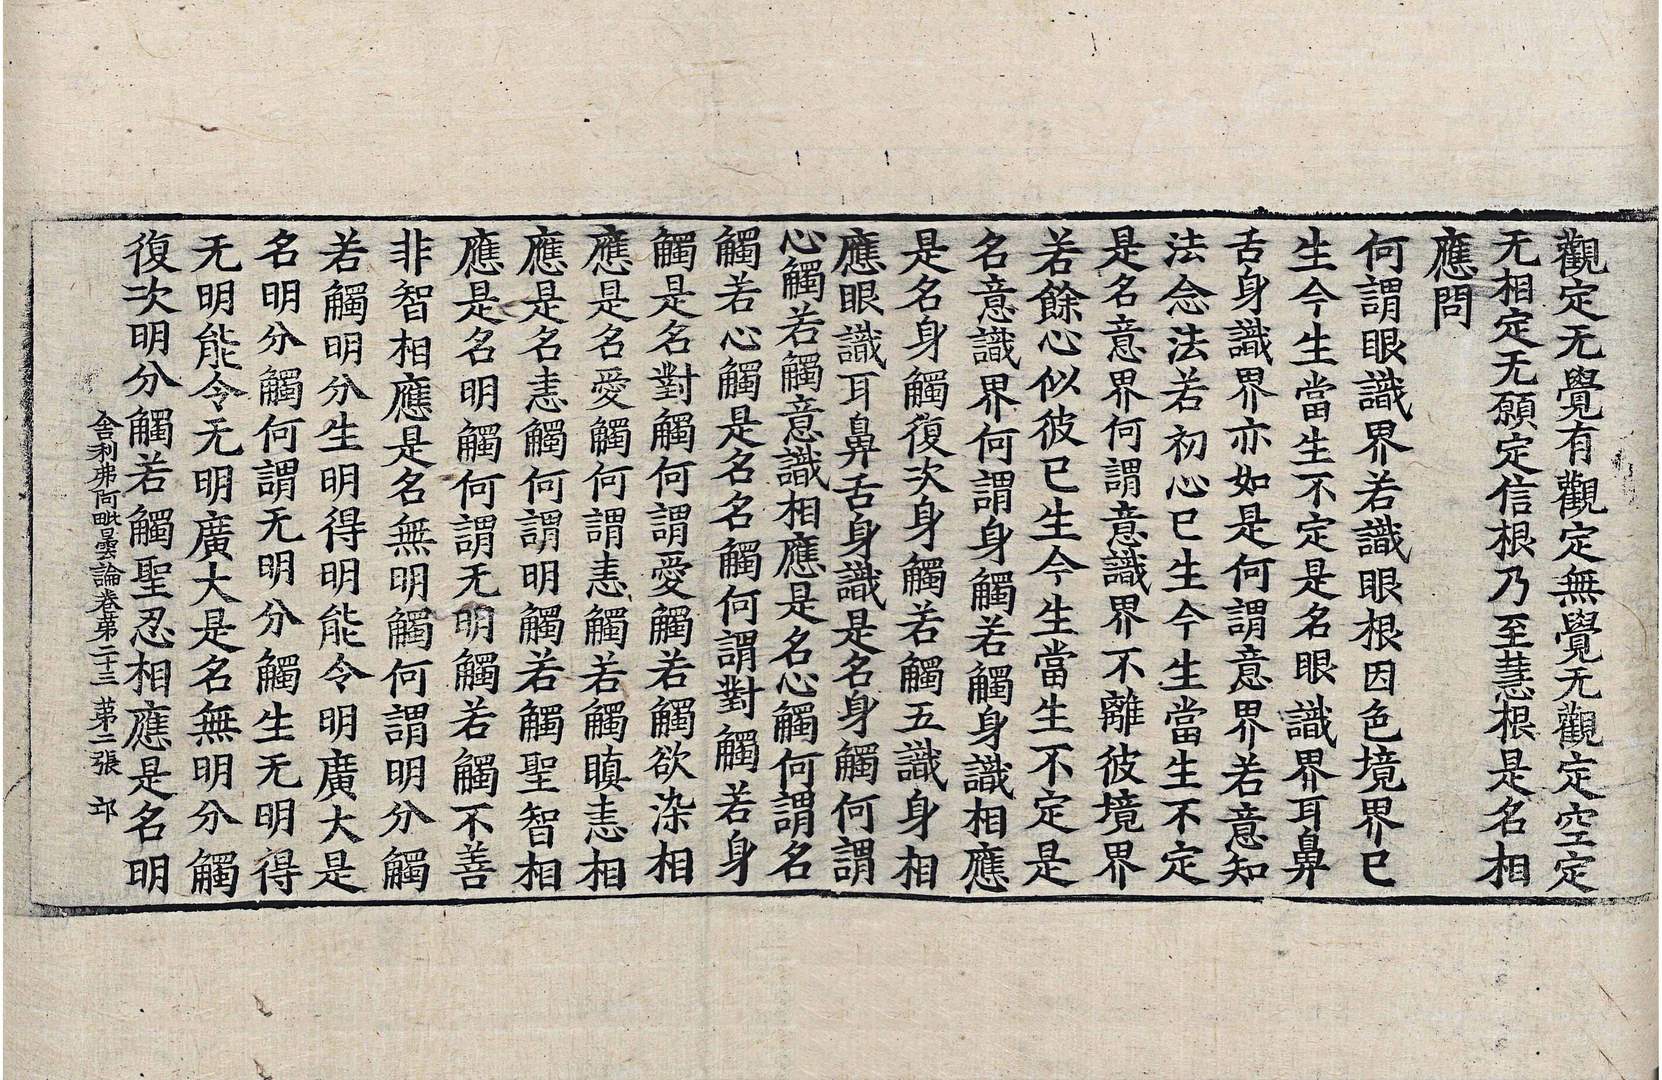 觀定无覺有觀定無覺无觀定空定
无相定无願定信根乃至慧根是名相
應問
何謂眼識界若識眼根因色境界已
生今生當生不定是名眼識界耳鼻
舌身識界亦如是何謂意界若意知
法念法若初心已生今生當生不定
是名意界何謂意識界不離彼境界
若餘心似彼已生今生當生不定是
名意識界何謂身觸若觸身識相應
是名身觸復次身觸若觸五識身相
應眼識耳鼻舌身識是名身觸何謂
心觸若觸意識相應是名心觸何謂名
觸若心觸是名名觸何謂對觸若身
觸是名對觸何謂愛觸若觸欲染相
應是名愛觸何謂恚觸若觸瞋恚相
應是名恚觸何謂明觸若觸聖智相
應是名明觸何謂无明觸若觸不善
非智相應是名無明觸何謂明分觸
若觸明分生明得明能令明廣大是
名明分觸何謂无明分觸生无明得
无明能令无明廣大是名無明分觸
復次明分觸若觸聖忍相應是名明
舍利弗阿毗曇論卷第二十三 第二張 𨚗